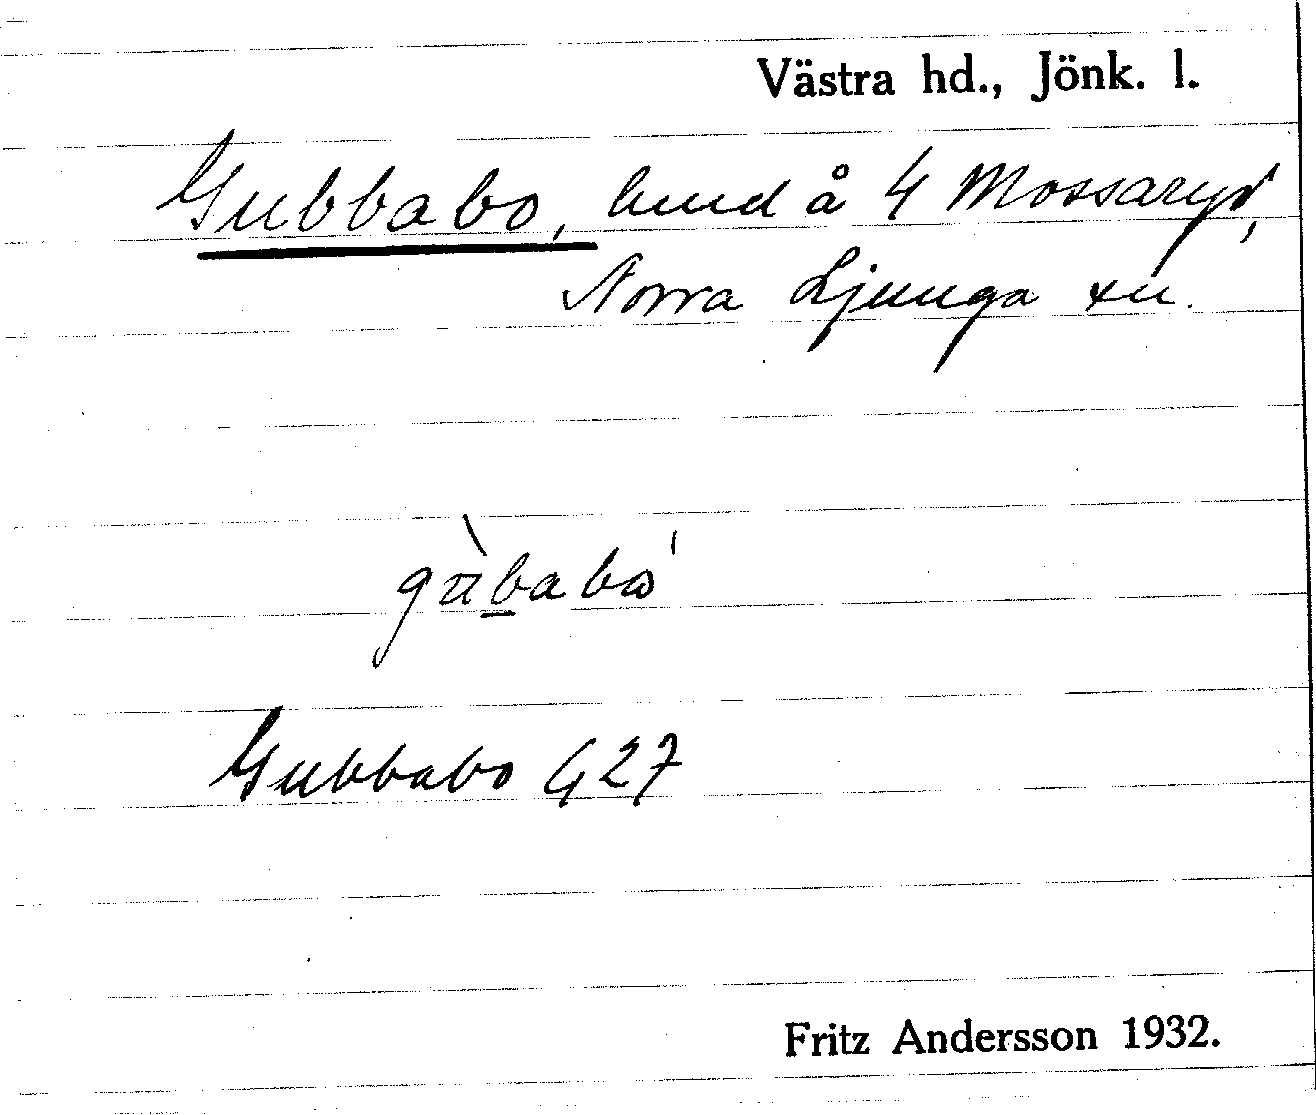 Västra hd., Jönk. l.
Gubbabo, lund å 4 Mossaryd,
Norra Ljunga sn.
Gubbabo G 27
Fritz Andersson 1932.